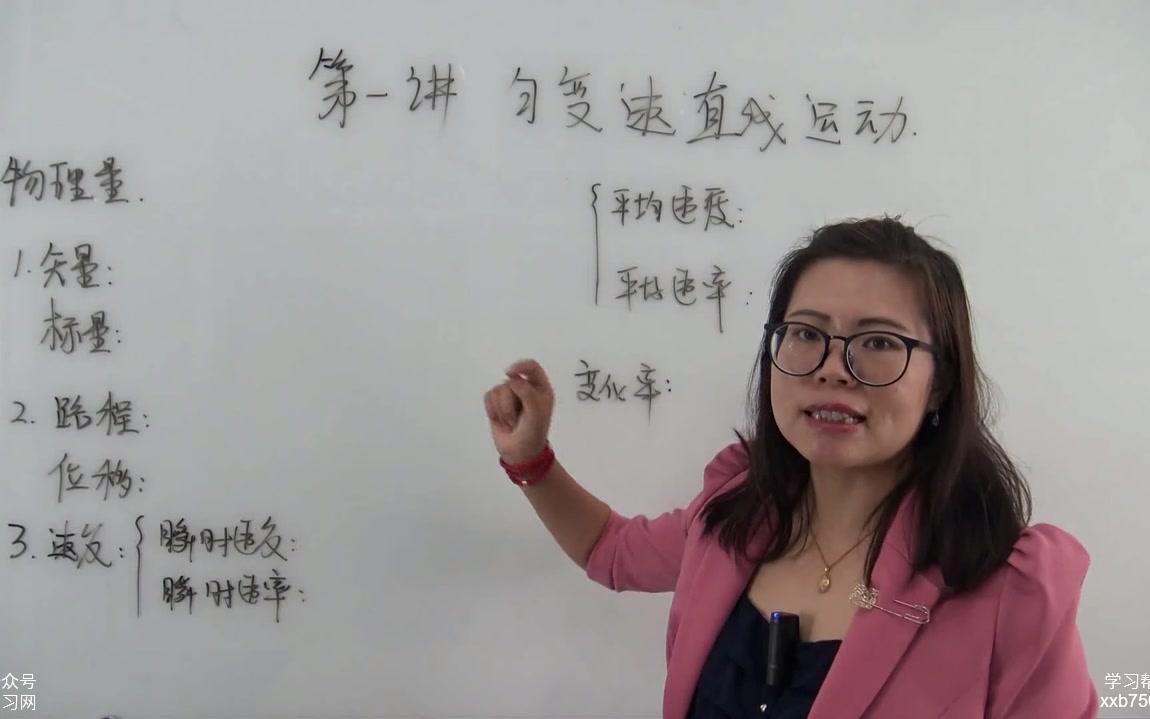 第一讲 匀变速直线运动.
物理量.
1. 矢量:
标量:
2. 路程:
位移:
3. 速度: { 瞬时速度:
瞬时速率:
{ 平均速度:
平均速率:
变化率:
众号
习网
学习帮
xxb750